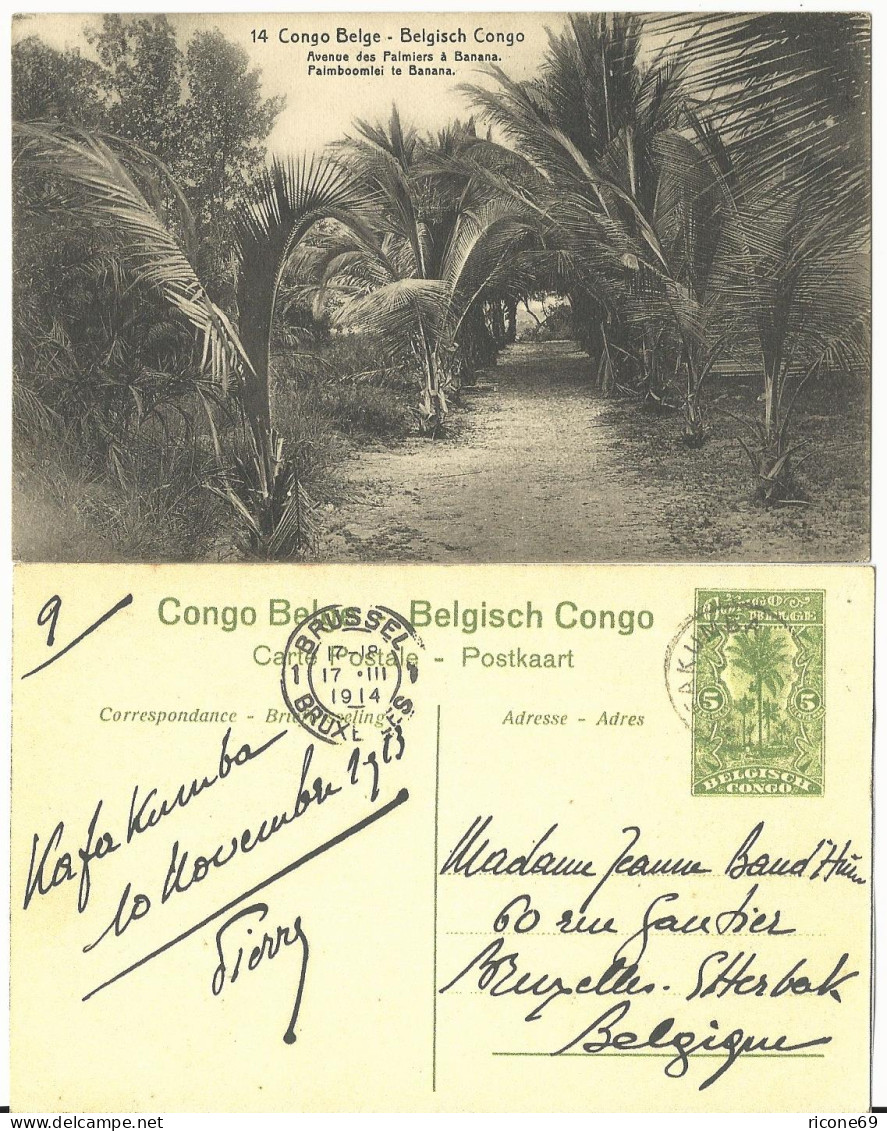 14 Congo Belge - Belgisch Congo
Avenue des Palmiers à Banana.
Palmboomlei te Banana.
9
Congo Belge - Belgisch Congo
Carte Postale - Postkaart
Correspondance - Briefwisseling
Adresse - Adres
BRUSSEL
17-18
1 17 · III 1
1914
BRUXELLES
KAFAKUMBA
5 5
BELGISCH
CONGO
Kafakumba
10 Novembre 1913
Pierre
Madame Jeanne
60 rue Gautier
Bruxelles. Etterbek
Belgique
ricone69